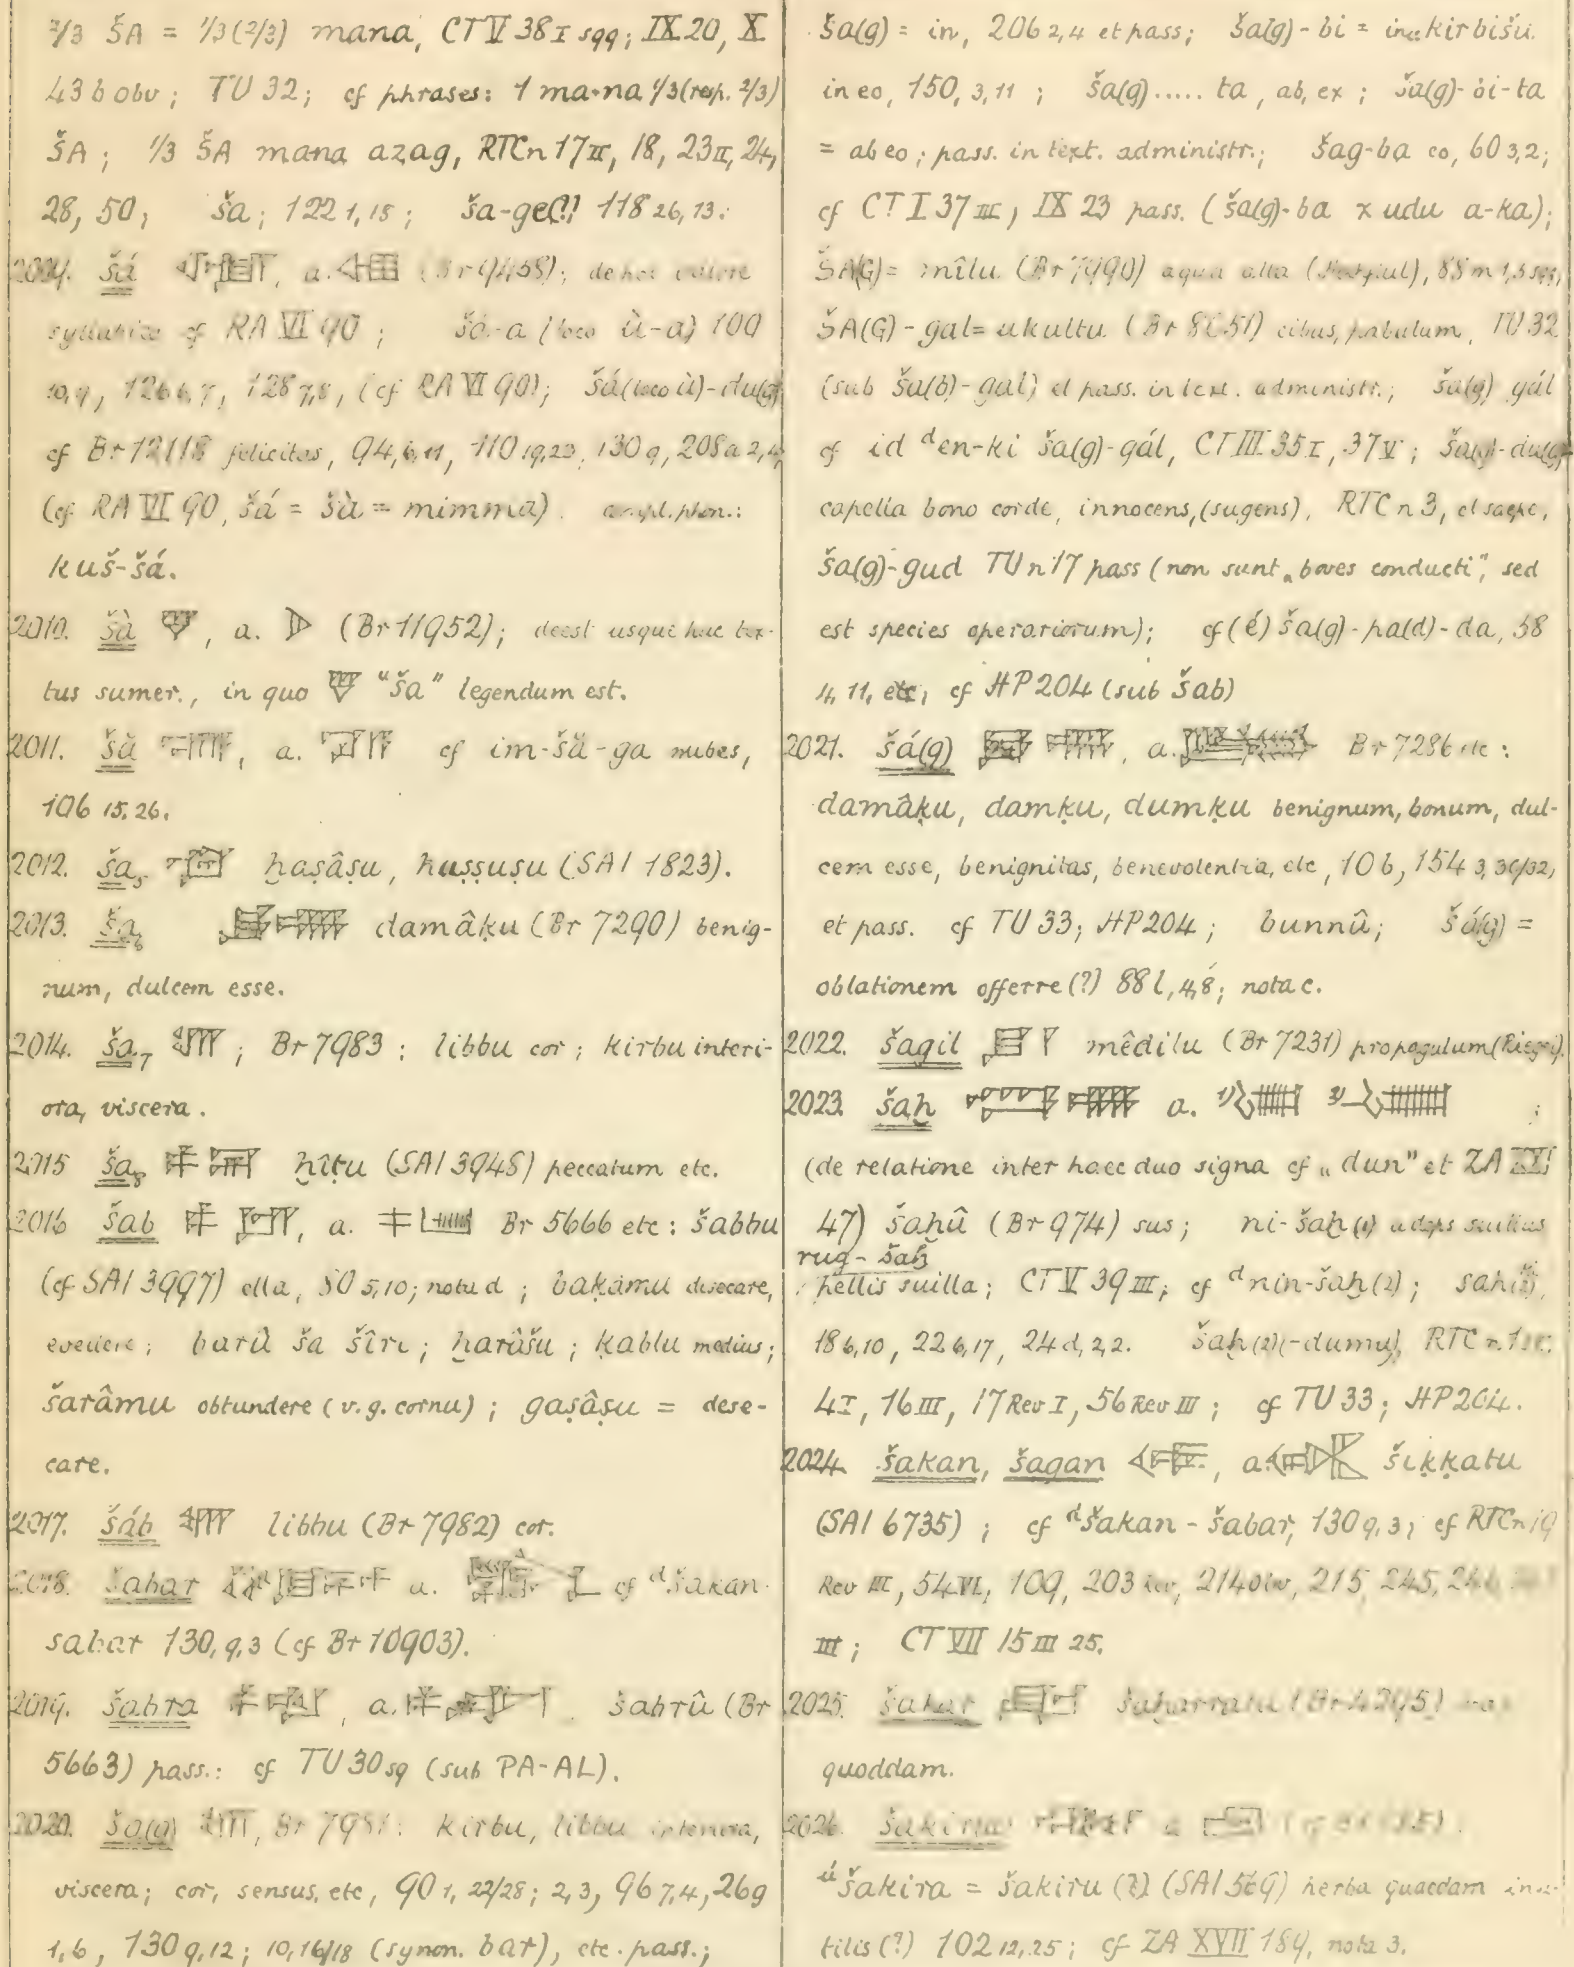 2/3 ŠA = 1/3 (2/3) mana, CT V 38 I sqq; IX 20, X
43 b obv; TU 32; cf phrases: 1 ma-na 1/3 (resp. 2/3)
ŠA; 1/3 ŠA mana azag, RTC n 17 II, 18, 23 II, 24,
28, 50; ša; 122 1,15; ša-ge(?) 118 26,13.
šá , a. ; de hoc valore
syllabico cf RA VI 90; šá-a (loco ù-a) 100
10,9, 126 6,7, 128 7,8, (cf RA VI 90); šá (loco ù)-du(g)
cf Br 12118 felicitas, 94,6,11, 110 19,23, 130 9, 208a 2,4,
(cf RA VI 90, šá = šà = mimma). compl. phon.:
kuš-šá.
2010. šà , a. (Br 11952); deest usque huc tex-
tus sumer., in quo "ša" legendum est.
2011. šă , a. cf im-šă-ga nubes,
106 15.26.
2012. ša₅ ḫaṣâṣu, ḫuṣṣuṣu (SAI 1823).
2013. ša₆ damâḳu (Br 7290) benig-
num, dulcem esse.
2014. ša₇ ; Br 7983: libbu cor; kirbu interi-
ora, viscera.
2015 ša₈ ḫîṭu (SAI 3948) peccatum etc.
2016 šab , a. Br 5666 etc: šabbu
(cf SAI 3997) olla, 50 5,10; nota d; baḳâmu desecare,
evellere; barû ša šîri; ḫarâšu; ḳablu medius;
šarâmu obtundere (v.g. cornu); gaṣâṣu = dese-
care.
2017. šáb libbu (Br 7982) cor.
2018. šabar a. cf ᵈšakan-
šabar 130,9,3 (cf Br 10903).
2019. šabra , a. šabrû (Br
5663) pass.: cf TU 30 sq (sub PA-AL).
2020. ša(g) , Br 7981: kirbu, libbu interiora,
viscera; cor, sensus, etc, 90 1, 22/28; 2,3, 96 7,4, 26g
1,6, 130 9,12; 10,16/18 (synon. bar), etc. pass.;
ša(g) = in, 206 2,4 et pass; ša(g)-bi = ina kirbišu
in eo, 150, 3,11; ša(g)..... ta, ab, ex; ša(g)-bi-ta
= ab eo; pass. in text. administr.; šag-ba eo, 60 3,2;
cf CT I 37 III, IX 23 pass. (ša(g)-ba x udu a-ka);
ŠA(G) = mîlu (Br 7990) aqua alta
ŠA(G)-gal = ukultu (Br 8051) cibus, pabulum, TU 32
(sub ša(b)-gal) et pass. in text. administr.; ša(g) gál
cf id ᵈen-ki ša(g)-gál, CT III 35 I, 37 V; ša(g)-du(g)
capella bono corde, innocens, (sugens), RTC n 3, et saepe,
ša(g)-gud TU n 17 pass (non sunt „boves conducti", sed
est species operariorum); cf (é) ša(g)-pa(d)-da, 58
4, 11, etc, cf HP 204 (sub šab)
2021. šá(g) , a. Br 7286 etc:
damâḳu, damḳu, dumḳu benignum, bonum, dul-
cem esse, benignitas, benevolentia, etc, 10 b, 154 3, 30/32,
et pass. cf TU 33; HP 204; bunnû; šá(g) =
oblationem offerre (?) 88 l, 4,8; nota c.
2022. šagil mêdilu (Br 7231) propagulum (Riegel).
2023 šaḫ a. 1) 2) ;
(de relatione inter haec duo signa cf „dun" et ZA XVI
47) šaḫû (Br 974) sus; ni-šaḫ (1) adeps suillus
rug-šaḫ
pellis suilla; CT V 39 III; cf ᵈnin-šaḫ (2); šaḫ (2),
18 6,10, 22 6,17, 24 d, 2,2. šaḫ (2) (-dumu), RTC n.
4 I, 16 III, 17 Rev I, 56 Rev III; cf TU 33; HP 204.
2024 šakan, šagan , a. šiḳḳatu
(SAI 6735); cf ᵈšakan-šabar, 130 9,3; cf RTC n 19
Rev III, 54 VI, 109, 203 rev, 214 obv, 215, 245,
III; CT VII 15 III 25.
2025. šakar šaḫarratu (Br 4295)
quoddam.
2026. šakira a.
ᵘšakira = šakiru (?) (SAI 569) herba quaedam inu-
tilis (?) 102 12,25; cf ZA XVII 184, nota 3.